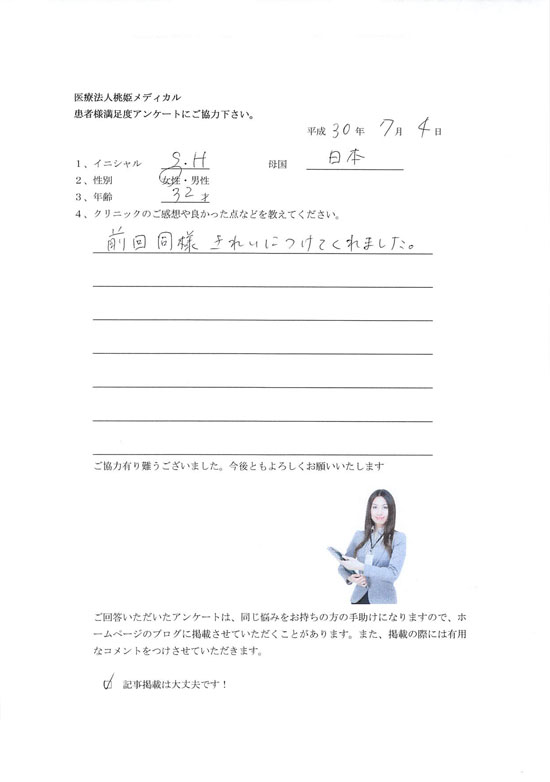 医療法人桃姫メディカル
患者様満足度アンケートにご協力下さい。
平成 30 年 7 月 4 日
1、イニシャル S.H 母国 日本
2、性別 女性・男性
3、年齢 32才
4、クリニックのご感想や良かった点などを教えてください。
前回同様 きれいにつけてくれました。
ご協力有り難うございました。今後ともよろしくお願いいたします
ご回答いただいたアンケートは、同じ悩みをお持ちの方の手助けになりますので、ホ
ームページのブログに掲載させていただくことがあります。また、掲載の際には有用
なコメントをつけさせていただきます。
☑ 記事掲載は大丈夫です！